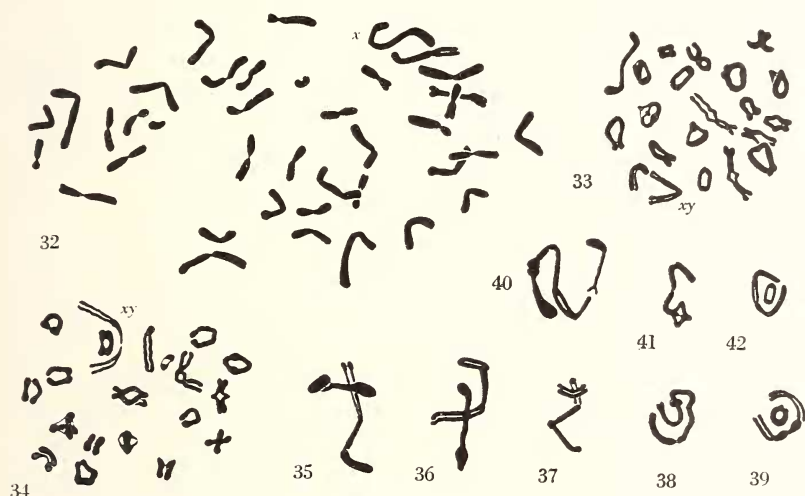 x
32
33
xy
40
41
42
xy
34
35
36
37
38
39